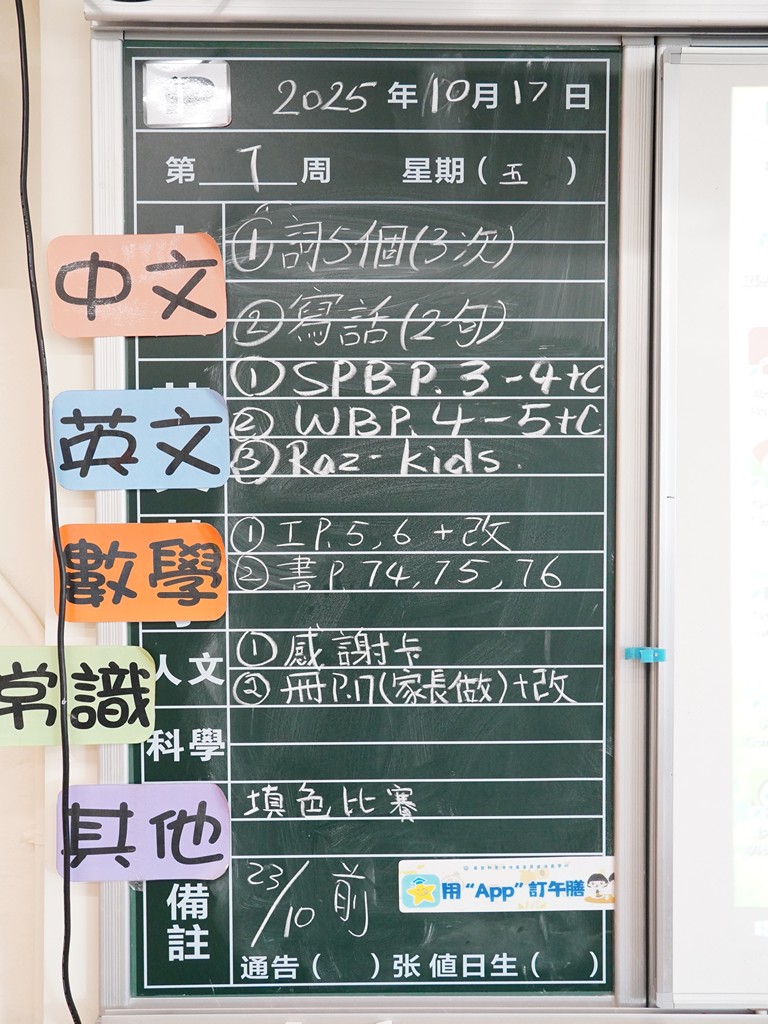 P
2025年10月17日
第 7 周 星期(五)
中文
①詞5個(3次)
②寫話(2句)
英文
①SPB P.3-4+C
②WB P.4-5+C
③Raz-kids.
數學
①工P.5,6+改
②書P.74,75,76
常識
人文
①感謝卡
②冊P.17(家長做)+改
科學
其他
填色比賽
備註
23/10前
用“App”訂午膳
通告( )张 值日生( )